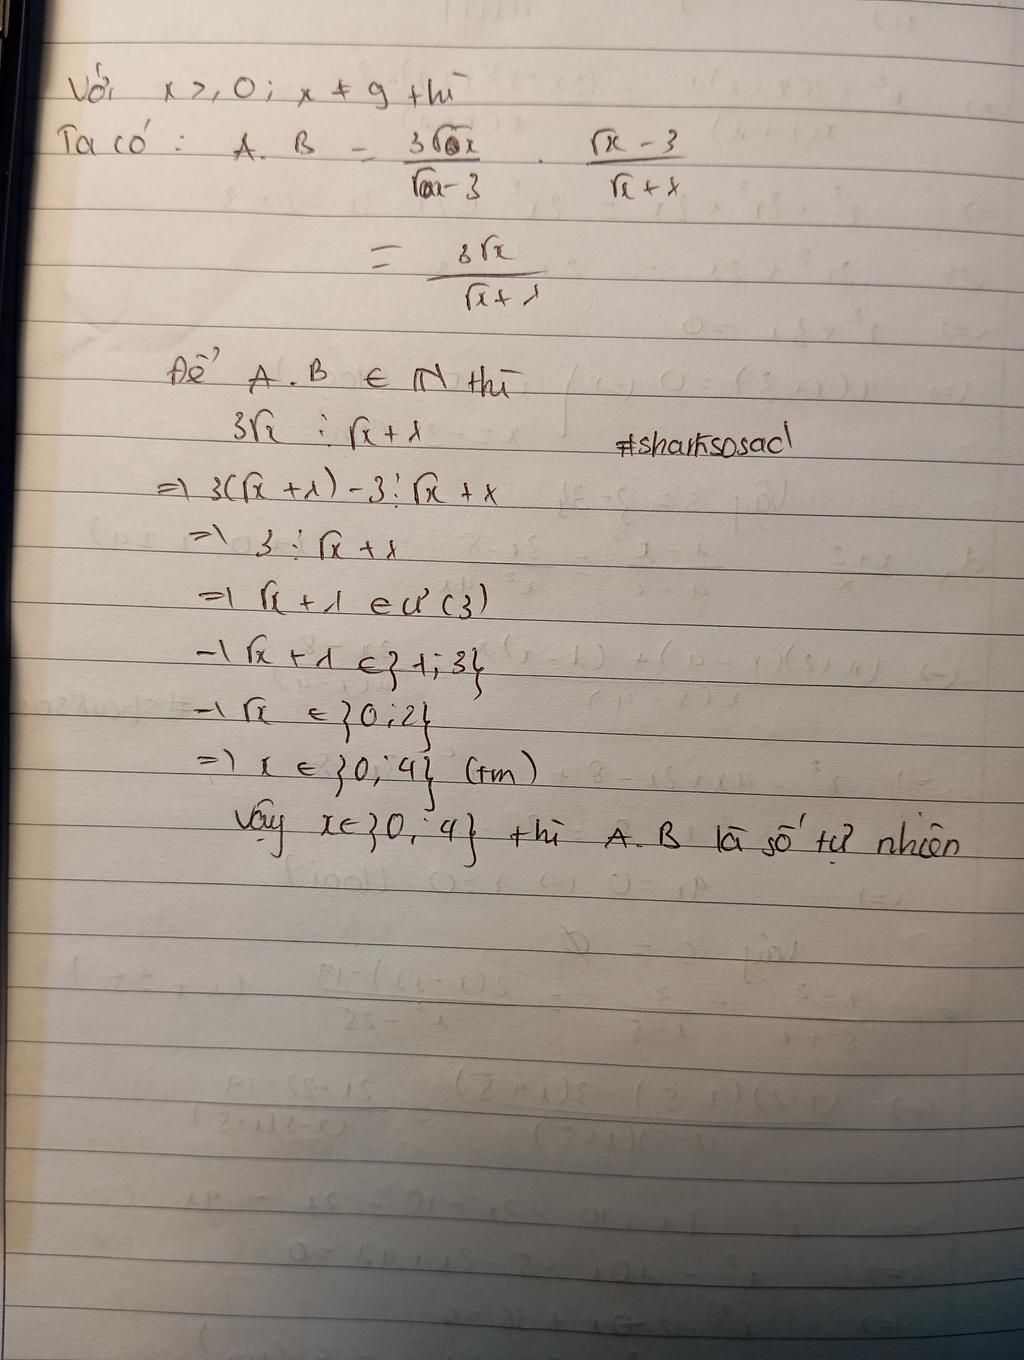 Với x ≥ 0 ; x ≠ 9 thì
Ta có : A. B = 3√x / √x - 3 . √x - 3 / √x + 1
= 3√x / √x + 1
Để A . B ∈ N thì
3√x ⋮ √x + 1
#sharksosad
=> 3(√x + 1) - 3 ⋮ √x + 1
=> 3 ⋮ √x + 1
=> √x + 1 ∈ Ư (3)
=> √x + 1 ∈ {1; 3}
=> √x ∈ {0 ; 2}
=> x ∈ {0 ; 4} (tm)
Vậy x ∈ {0 ; 4} thì A. B là số tự nhiên